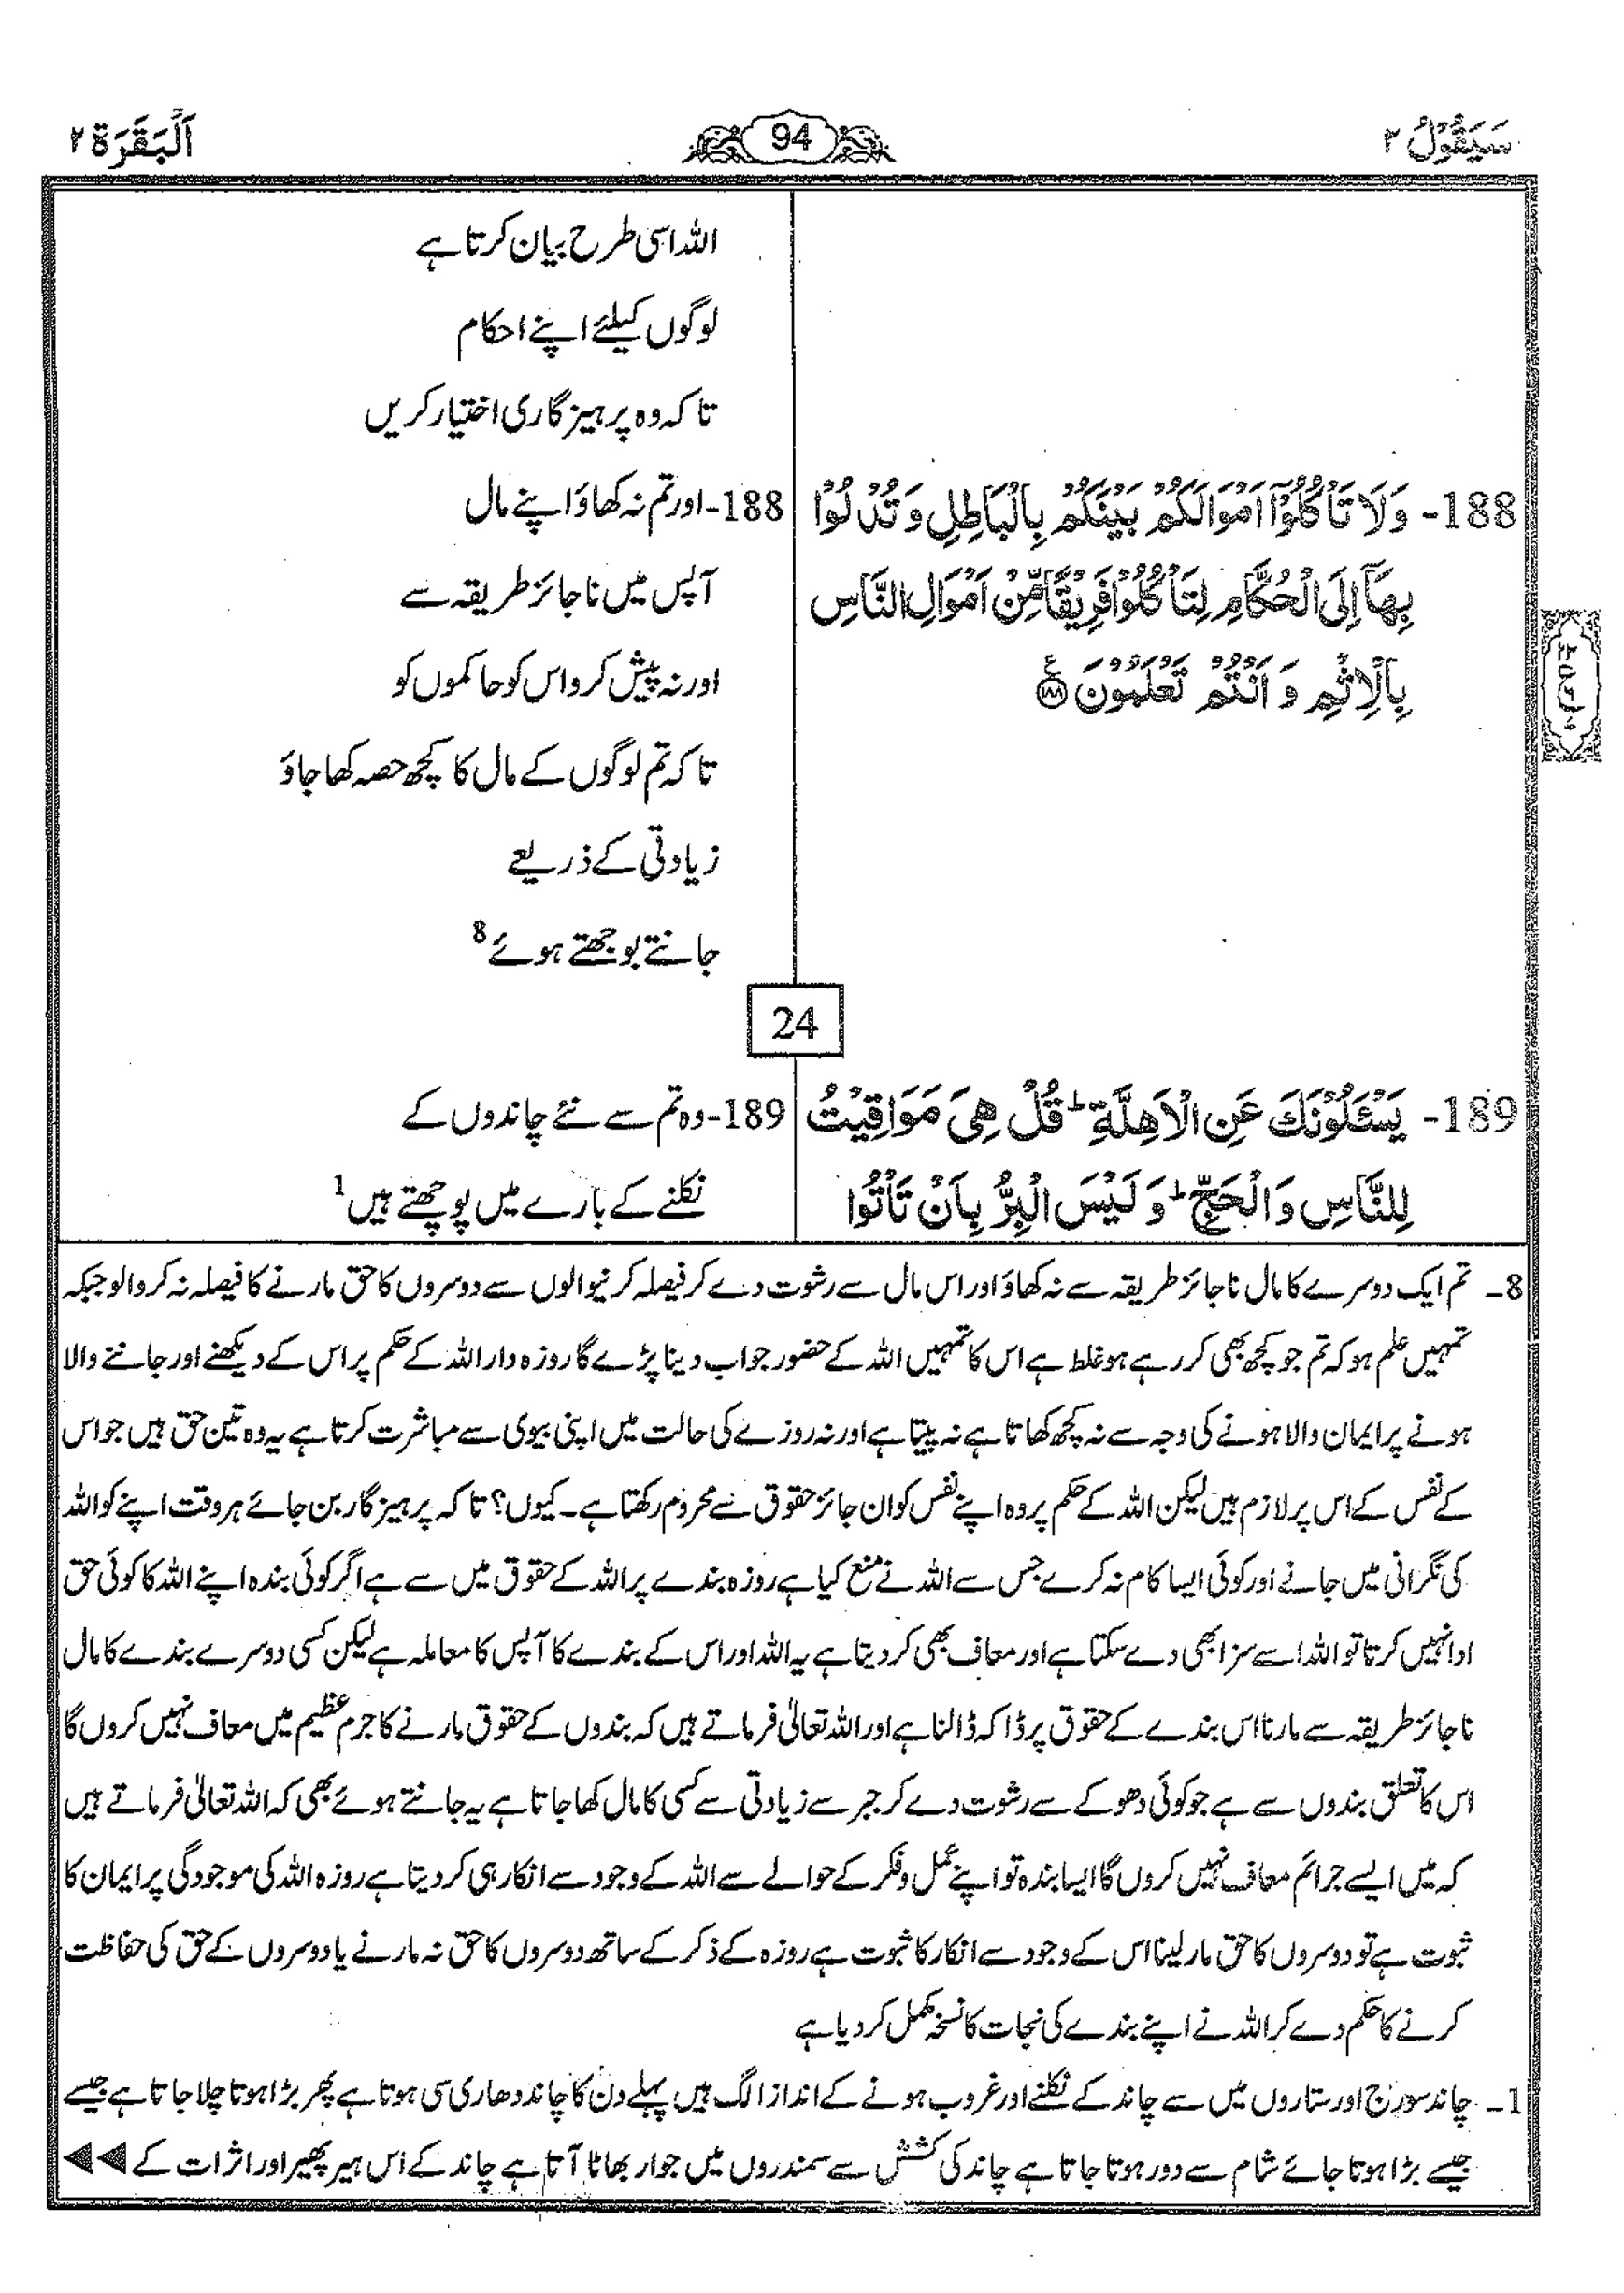 سَيَقُوْلُ ٢
94
اَلْبَقَرَة ٢
اللہ اسی طرح بیان کرتا ہے
لوگوں کیلئے اپنے احکام
تاکہ وہ پرہیزگاری اختیار کریں
188- وَلَا تَاْكُلُوْٓا اَمْوَالَكُمْ بَيْنَكُمْ بِالْبَاطِلِ وَ تُدْلُوْا
بِهَآ اِلَى الْحُكَّامِ لِتَاْكُلُوْا فَرِيْقًا مِّنْ اَمْوَالِ النَّاسِ
بِالْاِثْمِ وَ اَنْتُمْ تَعْلَمُوْنَ ۝١٨٨ ع
188- اور تم نہ کھاؤ اپنے مال
آپس میں ناجائز طریقہ سے
اور نہ پیش کرو اس کو حاکموں کو
تاکہ تم لوگوں کے مال کا کچھ حصہ کھا جاؤ
زیادتی کے ذریعے
جانتے بوجھتے ہوئے 8
24
189- يَسْـَٔلُوْنَكَ عَنِ الْاَهِلَّةِ ؕ قُلْ هِيَ مَوَاقِيْتُ
لِلنَّاسِ وَ الْحَجِّ ؕ وَ لَيْسَ الْبِرُّ بِاَنْ تَاْتُوا
189- وہ تم سے نئے چاندوں کے
نکلنے کے بارے میں پوچھتے ہیں 1
8- تم ایک دوسرے کا مال ناجائز طریقہ سے نہ کھاؤ اور اس مال سے رشوت دے کر فیصلہ کرنیوالوں سے دوسروں کا حق مارنے کا فیصلہ نہ کروالو جبکہ
تمہیں علم ہو کہ تم جو کچھ بھی کر رہے ہو غلط ہے اس کا تمہیں اللہ کے حضور جواب دینا پڑے گا روزہ دار اللہ کے حکم پر اس کے دیکھنے اور جاننے والا
ہونے پر ایمان والا ہونے کی وجہ سے نہ کچھ کھاتا ہے نہ پیتا ہے اور نہ روزے کی حالت میں اپنی بیوی سے مباشرت کرتا ہے یہ وہ تین حق ہیں جو اس
کے نفس کے اس پر لازم ہیں لیکن اللہ کے حکم پر وہ اپنے نفس کو ان جائز حقوق سے محروم رکھتا ہے۔ کیوں؟ تاکہ پرہیزگار بن جائے ہر وقت اپنے کو اللہ
کی نگرانی میں جانے اور کوئی ایسا کام نہ کرے جس سے اللہ نے منع کیا ہے روزہ بندے پر اللہ کے حقوق میں سے ہے اگر کوئی بندہ اپنے اللہ کا کوئی حق
ادا نہیں کرتا تو اللہ اسے سزا بھی دے سکتا ہے اور معاف بھی کر دیتا ہے یہ اللہ اور اس کے بندے کا آپس کا معاملہ ہے لیکن کسی دوسرے بندے کا مال
ناجائز طریقہ سے مارنا اس بندے کے حقوق پر ڈاکہ ڈالنا ہے اور اللہ تعالیٰ فرماتے ہیں کہ بندوں کے حقوق مارنے کا جرم عظیم میں معاف نہیں کروں گا
اس کا تعلق بندوں سے ہے جو کوئی دھوکے سے رشوت دے کر جبر سے زیادتی سے کسی کا مال کھا جاتا ہے یہ جانتے ہوئے بھی کہ اللہ تعالیٰ فرماتے ہیں
کہ میں ایسے جرائم معاف نہیں کروں گا ایسا بندہ تو اپنے عمل و فکر کے حوالے سے اللہ کے وجود سے انکار ہی کر دیتا ہے روزہ اللہ کی موجودگی پر ایمان کا
ثبوت ہے تو دوسروں کا حق مار لینا اس کے وجود سے انکار کا ثبوت ہے روزہ کے ذکر کے ساتھ دوسروں کا حق نہ مارنے یا دوسروں کے حق کی حفاظت
کرنے کا حکم دے کر اللہ نے اپنے بندے کی نجات کا نسخہ مکمل کر دیا ہے
1- چاند سورج اور ستاروں میں سے چاند کے نکلنے اور غروب ہونے کے انداز الگ ہیں پہلے دن کا چاند دھاری سی ہوتا ہے پھر بڑا ہوتا چلا جاتا ہے جیسے
جیسے بڑا ہوتا جائے شام سے دور ہوتا جاتا ہے چاند کی کشش سے سمندروں میں جوار بھاٹا آتا ہے چاند کے اس ہیر پھیر اور اثرات کے ◀◀